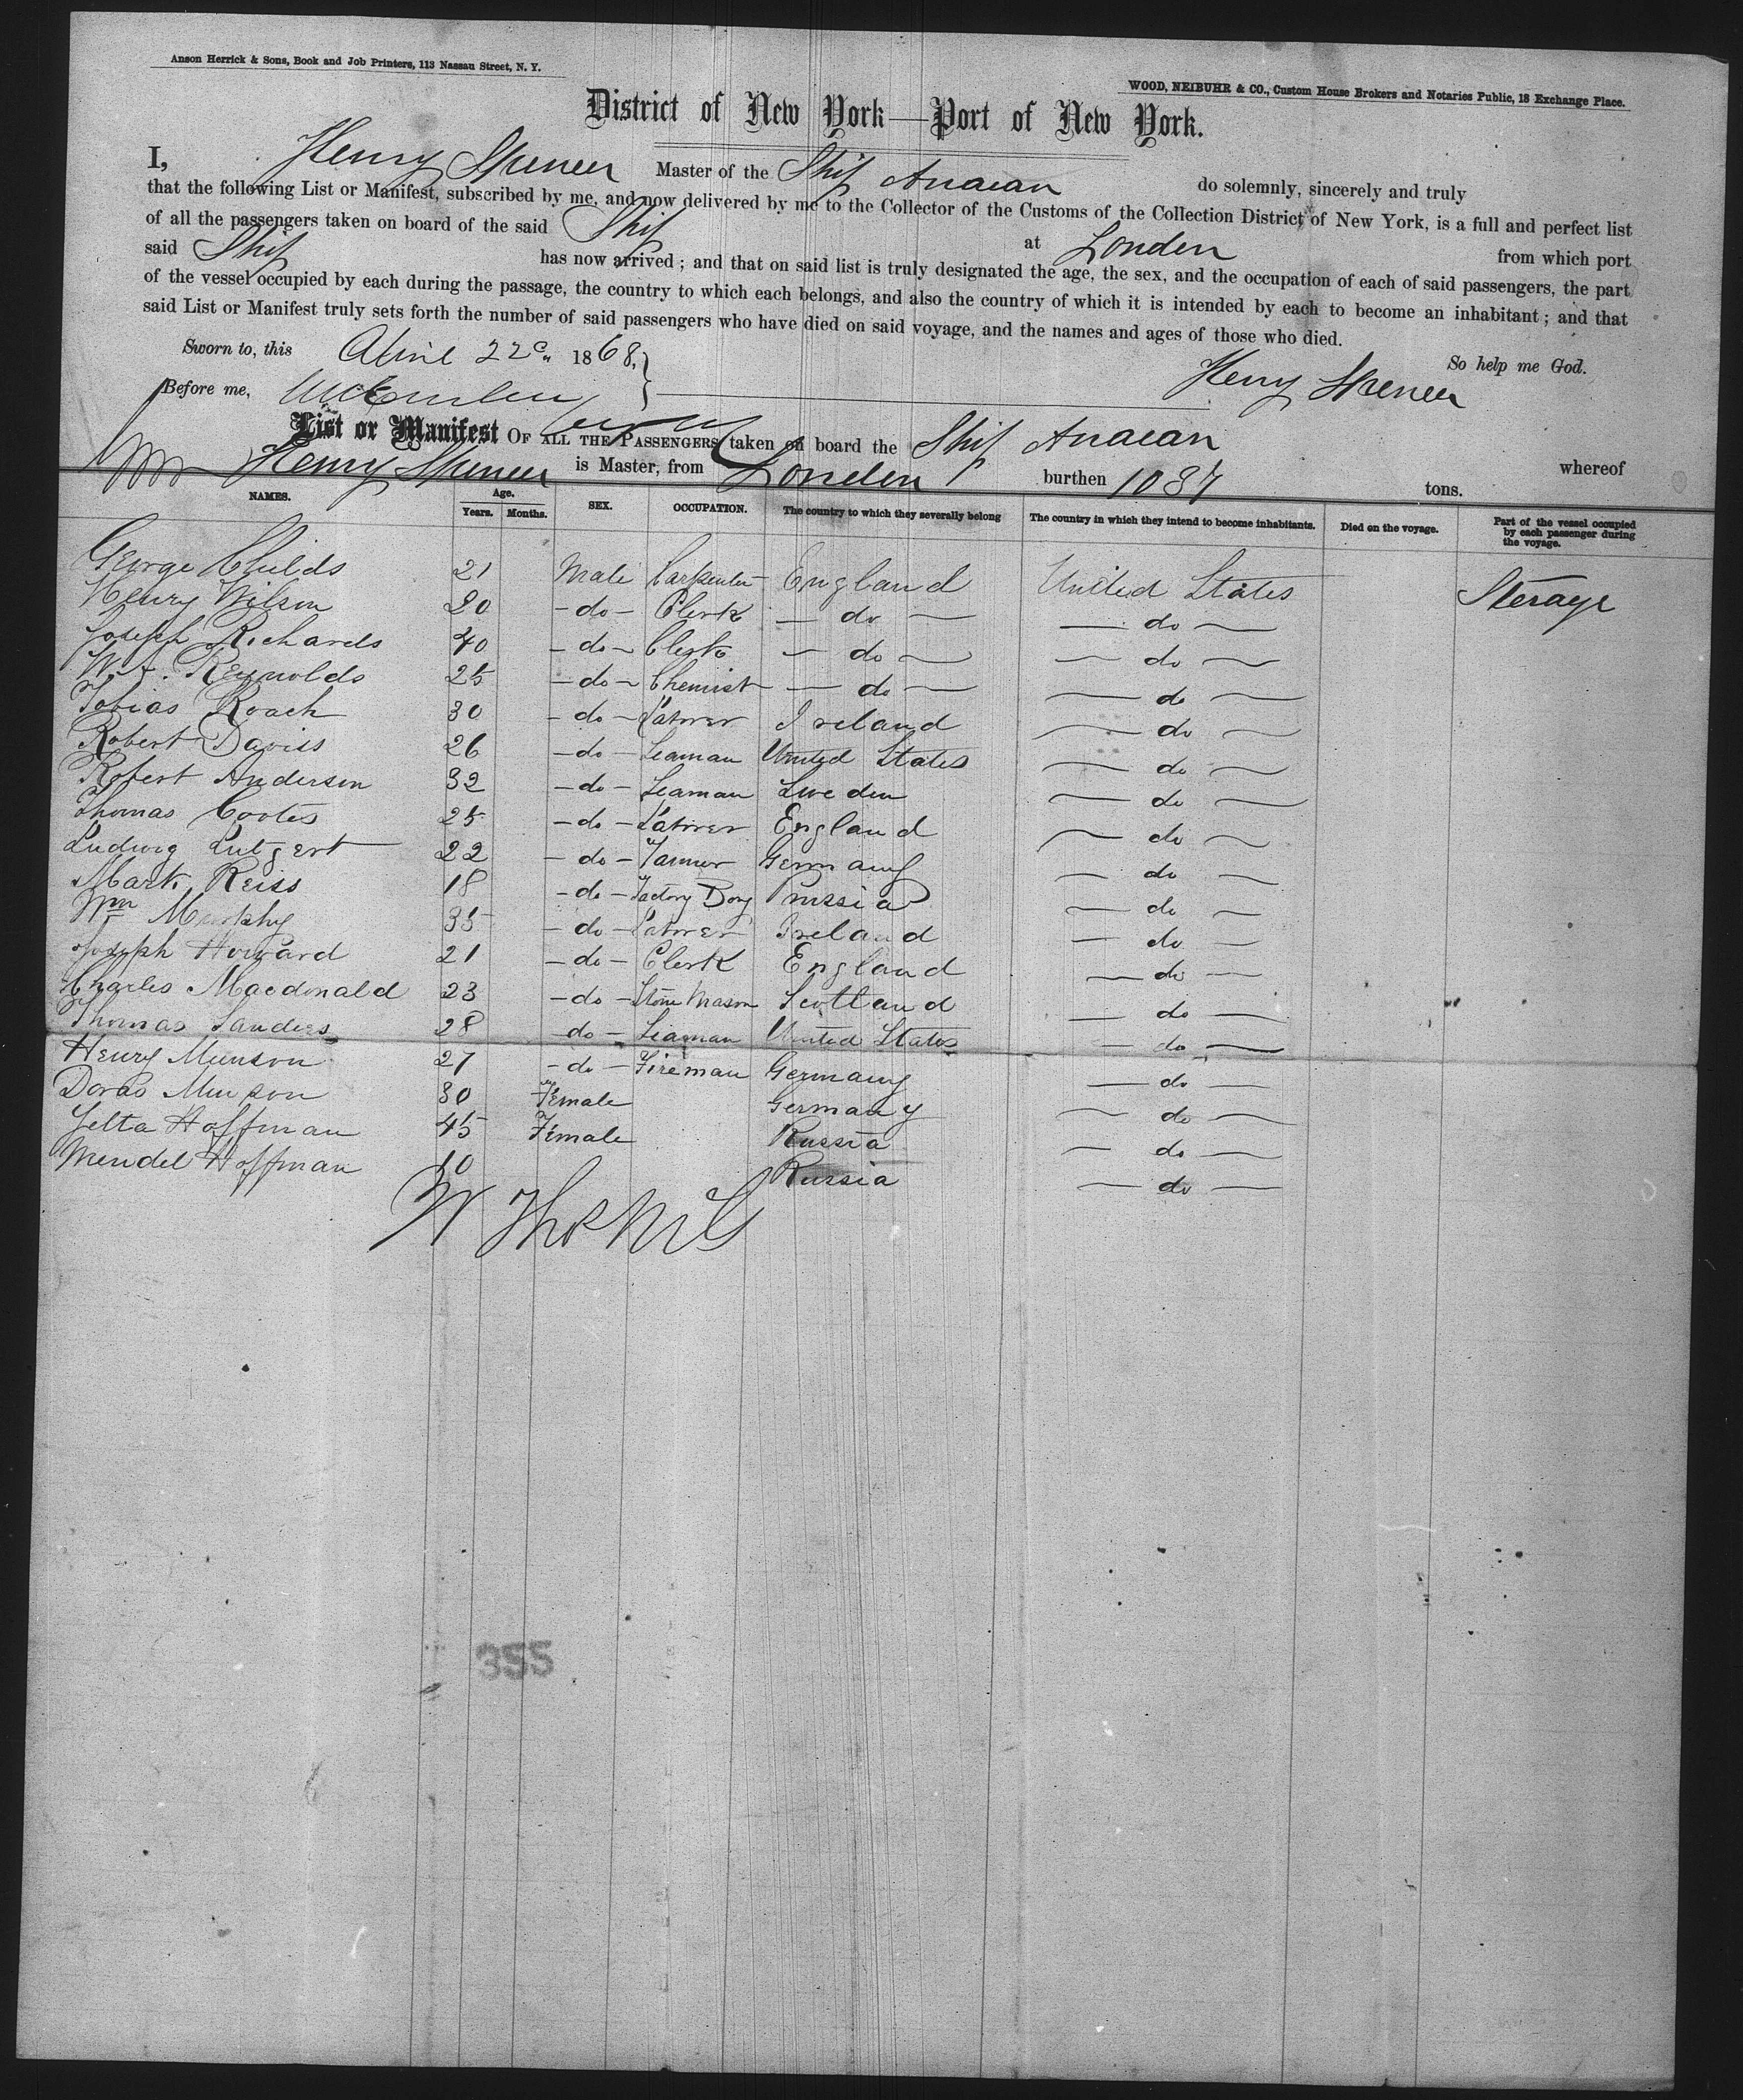 Anson Herrick & Sons, Book and Job Printers, 113 Nassau Street, N. Y.
WOOD, NEIBUHR & CO., Custom House Brokers and Notaries Public, 18 Exchange Place.
District of New York—Port of New York.
I, Henry Spencer Master of the Ship do solemnly, sincerely and truly
that the following List or Manifest, subscribed by me, and now delivered by me to the Collector of the Customs of the Collection District of New York, is a full and perfect list
of all the passengers taken on board of the said Ship at London from which port
said Ship has now arrived; and that on said list is truly designated the age, the sex, and the occupation of each of said passengers, the part
of the vessel occupied by each during the passage, the country to which each belongs, and also the country of which it is intended by each to become an inhabitant; and that
said List or Manifest truly sets forth the number of said passengers who have died on said voyage, and the names and ages of those who died.
Sworn to, this April 22d 1868, So help me God.
Before me, Henry Spencer
List or Manifest OF ALL THE PASSENGERS taken on board the Ship whereof
Henry Spencer is Master, from London burthen 1087 tons.
NAMES. Age. Years. Months. SEX. OCCUPATION. The country to which they severally belong The country in which they intend to become inhabitants. Died on the voyage. Part of the vessel occupied by each passenger during the voyage.
George Childs 21 Male Carpenter England United States Sterage
Henry Wilson 20 - do - Clerk - do - - do -
Joseph Richards 40 - do - Clerk - do - - do -
Reynolds 25 - do - Chemist - do - - do -
Tobias Roach 30 - do - Labrer Ireland - do -
Robert Daviss 26 - do - Seaman United States - do -
Robert Anderson 32 - do - Seaman Sweden - do -
Thomas Cootes 25 - do - Labrer England - do -
Ludwig Lutgert 22 - do - Germany - do -
Mark Reiss 18 - do - Factory Boy Prussia - do -
Wm Murphy 35 - do - Labrer Ireland - do -
Joseph Howard 21 - do - Clerk England - do -
Charles Macdonald 23 - do - Stone Mason Scotland - do -
Thomas Sanders 28 - do - Seaman United States - do -
Henry Munson 27 - do - Fireman Germany - do -
Doras Munson 30 Female Germany - do -
Yetta Hoffman 45 Female Russia - do -
Mendel Hoffman 10 Russia - do -
355